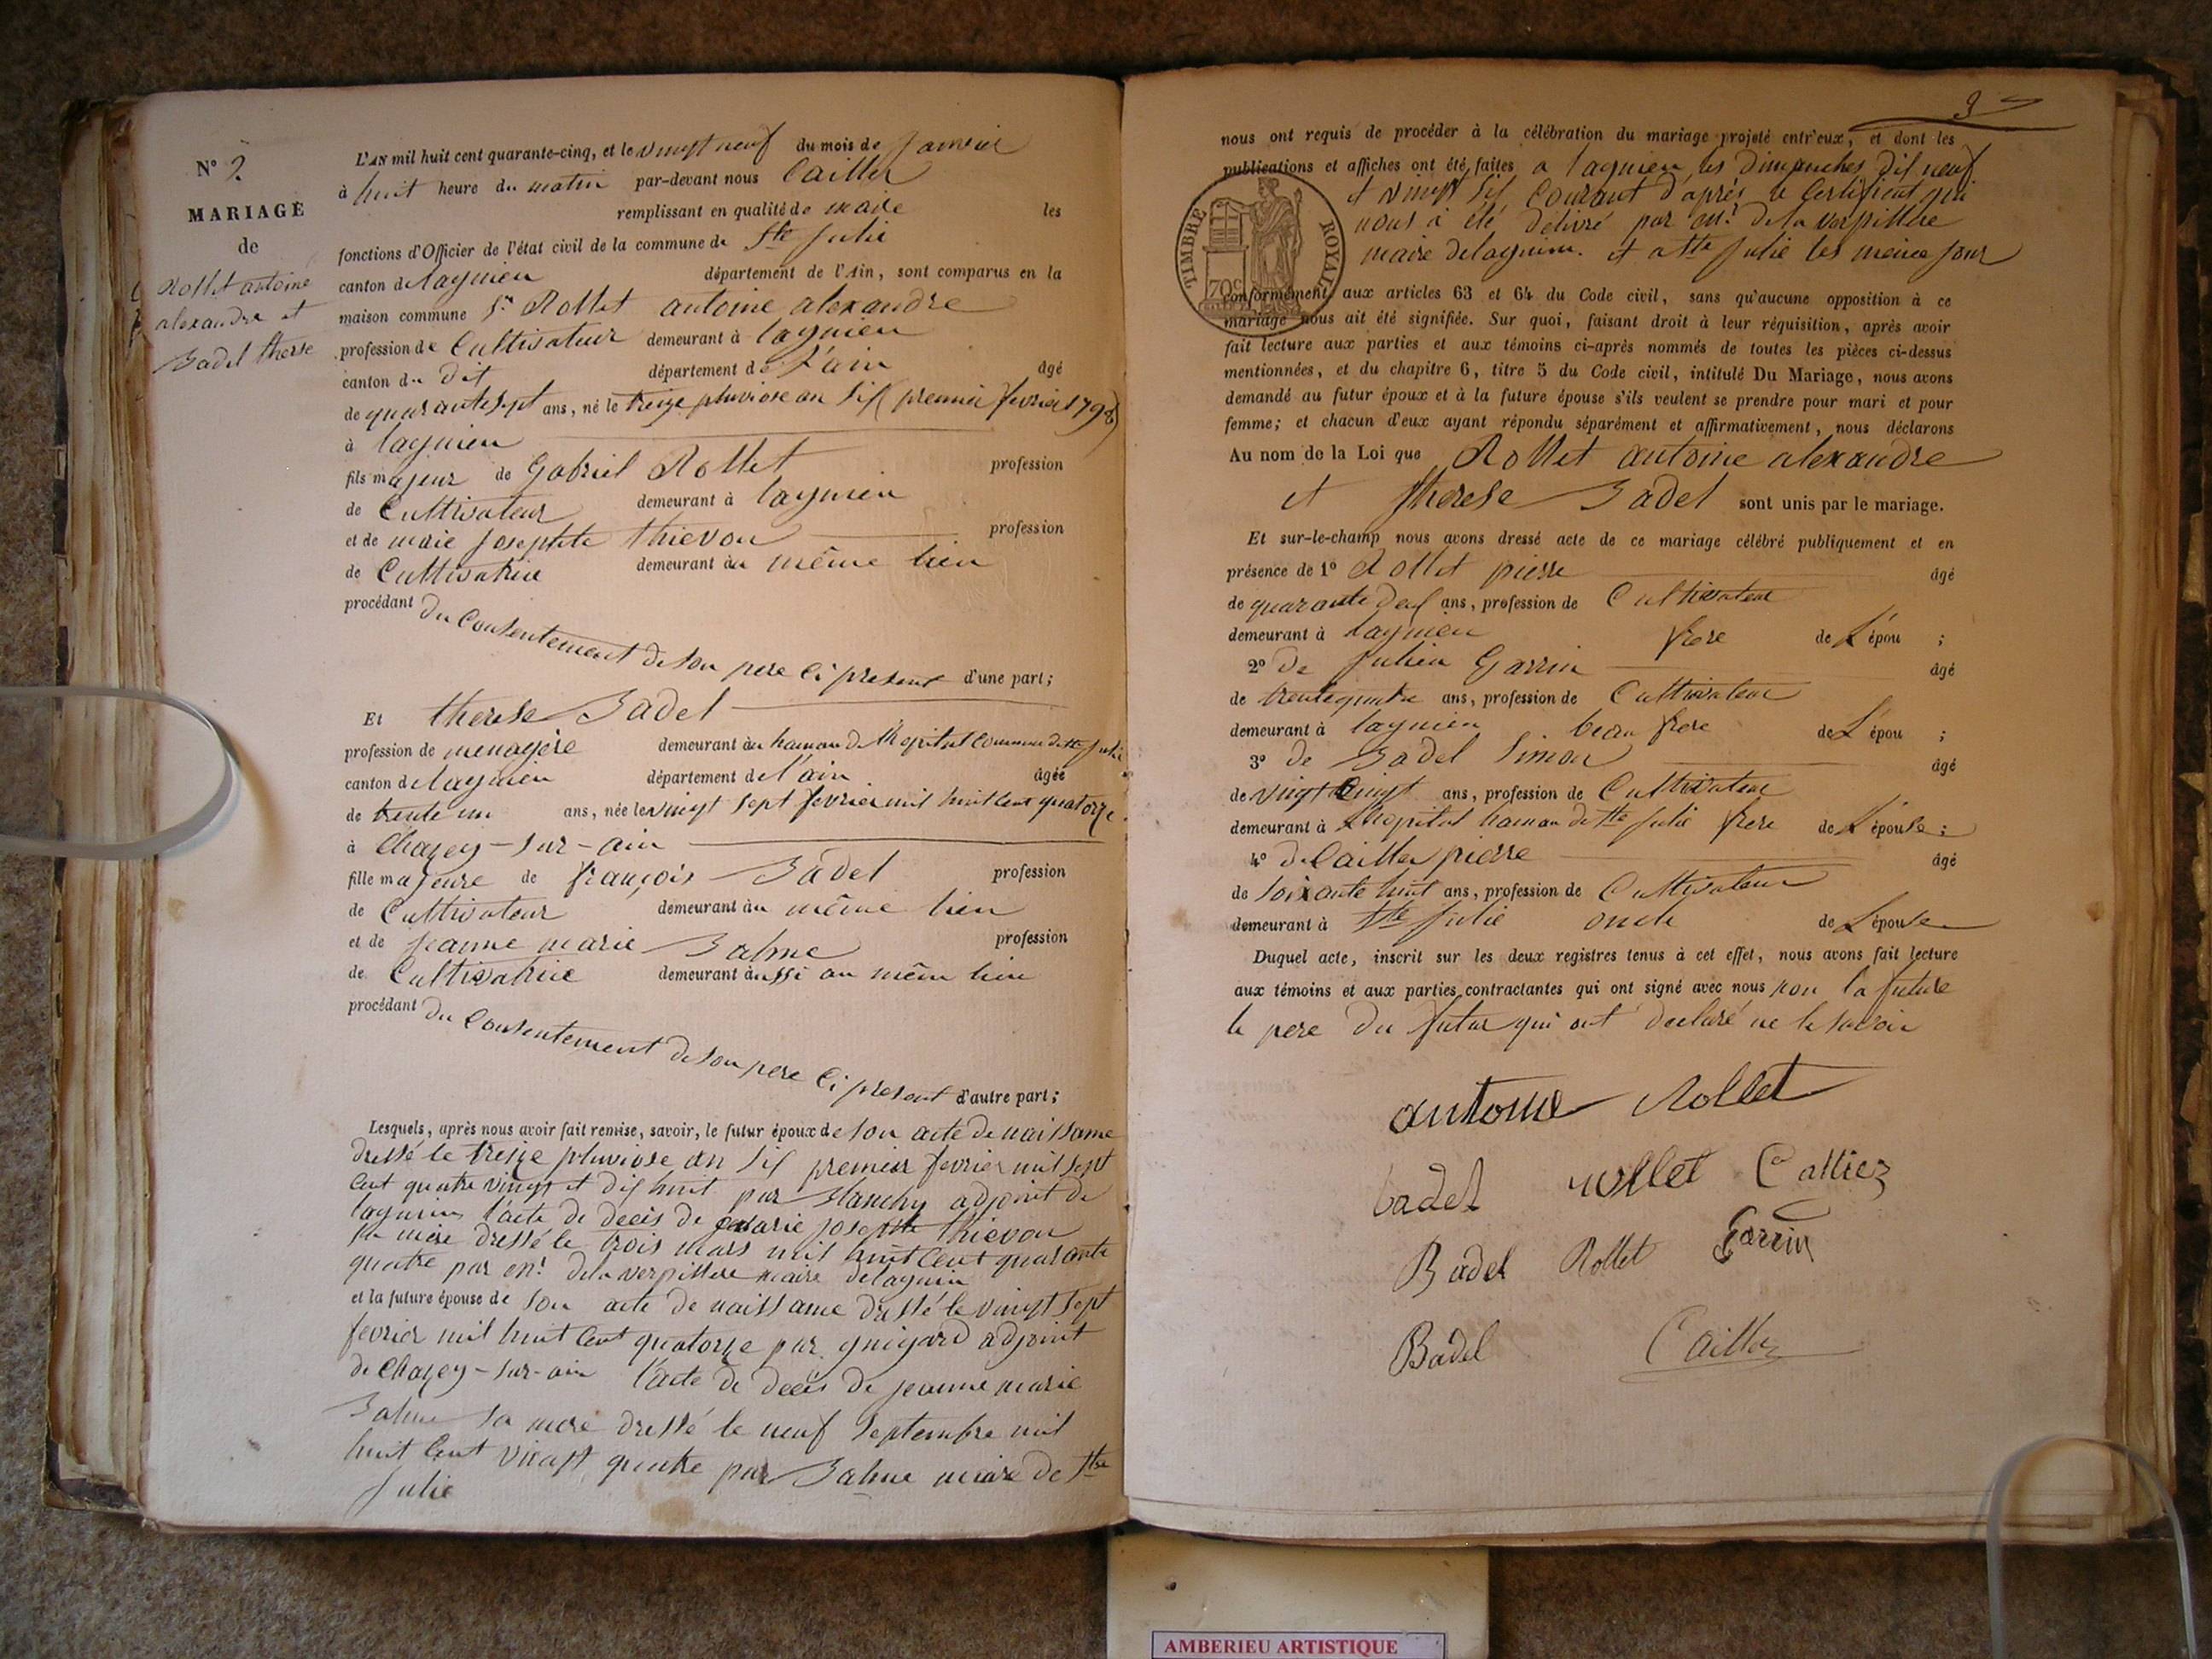 N° 2
MARIAGE
de
Rollet antoine
alexandre et
Badel therese
L'AN mil huit cent quarante-cinq, et le vingt neuf du mois de Janvier
à huit heure du matin par-devant nous Caillez
remplissant en qualité de maire les
fonctions d'Officier de l'état civil de la commune de Ste Julie
canton de lagnieu département de l'Ain, sont comparus en la
maison commune Sr Rollet antoine alexandre
profession de Cultivateur demeurant à lagnieu
canton du dit département de l'ain âgé
de quarante sept ans, né le treize pluviose an Six (premier fevrier 1798)
à lagnieu
fils majeur de Gabriel Rollet profession
de Cultivateur demeurant à lagnieu
et de marie Josephte thievon profession
de Cultivatrice demeurant au même lieu
procédant du Consentement de son pere Ci present d'une part;
Et therese Badel
profession de menagère demeurant au hamau de l'hopital Commune de Ste Julie
canton de lagnieu département de l'ain âgée
de trente un ans, née le vingt sept fevrier mil huit Cent quatorze
à Chazey-sur-ain
fille majeure de françois Badel profession
de Cultivateur demeurant au même lieu
et de Jeanne marie Bahue profession
de Cultivatrice demeurant aussi au même lieu
procédant du Consentement de son pere Ci present d'autre part;
Lesquels, après nous avoir fait remise, savoir, le futur époux de son acte de naissame
dressé le treize pluviose an Six premier fevrier mil sept
Cent quatre vingt et dix huit par Blanchy adjoint de
lagnieu, l'acte de deces de marie josephte thievon
sa mere dressé le trois mars mil huit Cent quarante
quatre par mr dela verpillere maire de lagnieu
et la future épouse de son acte de naissame dressé le vingt sept
fevrier mil huit Cent quatorze par guigard adjoint
de Chazey-sur-ain l'acte de deces de jeanne marie
Bahue sa mere dressé le neuf Septembre mil
huit Cent vingt quatre par Bahue maire de Ste
Julie
3
nous ont requis de procéder à la célébration du mariage projeté entr'eux, et dont les
publications et affiches ont été faites a lagnieu les dimanches dix neuf
et vingt six Courant d'après le Certificat qui
nous a été délivré par mr de la verpillere
maire de lagnieu. et a Ste Julie les meme jour
TIMBRE ROYAL
70c
conformément aux articles 63 et 64 du Code civil, sans qu'aucune opposition à ce
mariage nous ait été signifiée. Sur quoi, faisant droit à leur réquisition, après avoir
fait lecture aux parties et aux témoins ci-après nommés de toutes les pièces ci-dessus
mentionnées, et du chapitre 6, titre 5 du Code civil, intitulé Du Mariage, nous avons
demandé au futur époux et à la future épouse s'ils veulent se prendre pour mari et pour
femme; et chacun d'eux ayant répondu séparément et affirmativement, nous déclarons
Au nom de la Loi que Rollet antoine alexandre
et therese Badel sont unis par le mariage.
Et sur-le-champ nous avons dressé acte de ce mariage célébré publiquement et en
présence de 1° Rollet pierre âgé
de quarante deux ans, profession de Cultivateur
demeurant à lagnieu frere de L'épou ;
2° de Julien Garrin âgé
de trente quatre ans, profession de Cultivateur
demeurant à lagnieu beau frere de L'épou ;
3° de Badel Simon âgé
de vingt Cinq ans, profession de Cultivateur
demeurant à L'hopital hamau de Ste Julie frere de L'épouse;
4° de Caillez pierre âgé
de soixante huit ans, profession de Cultivateur
demeurant à Ste Julie oncle de L'épouse
Duquel acte, inscrit sur les deux registres tenus à cet effet, nous avons fait lecture
aux témoins et aux parties contractantes qui ont signé avec nous non la future
le pere du futur qui ont déclaré ne le savoir
antoine Rollet
badel rollet Calliez
Badel Rollet Garrin
Badel Caillez
AMBERIEU ARTISTIQUE